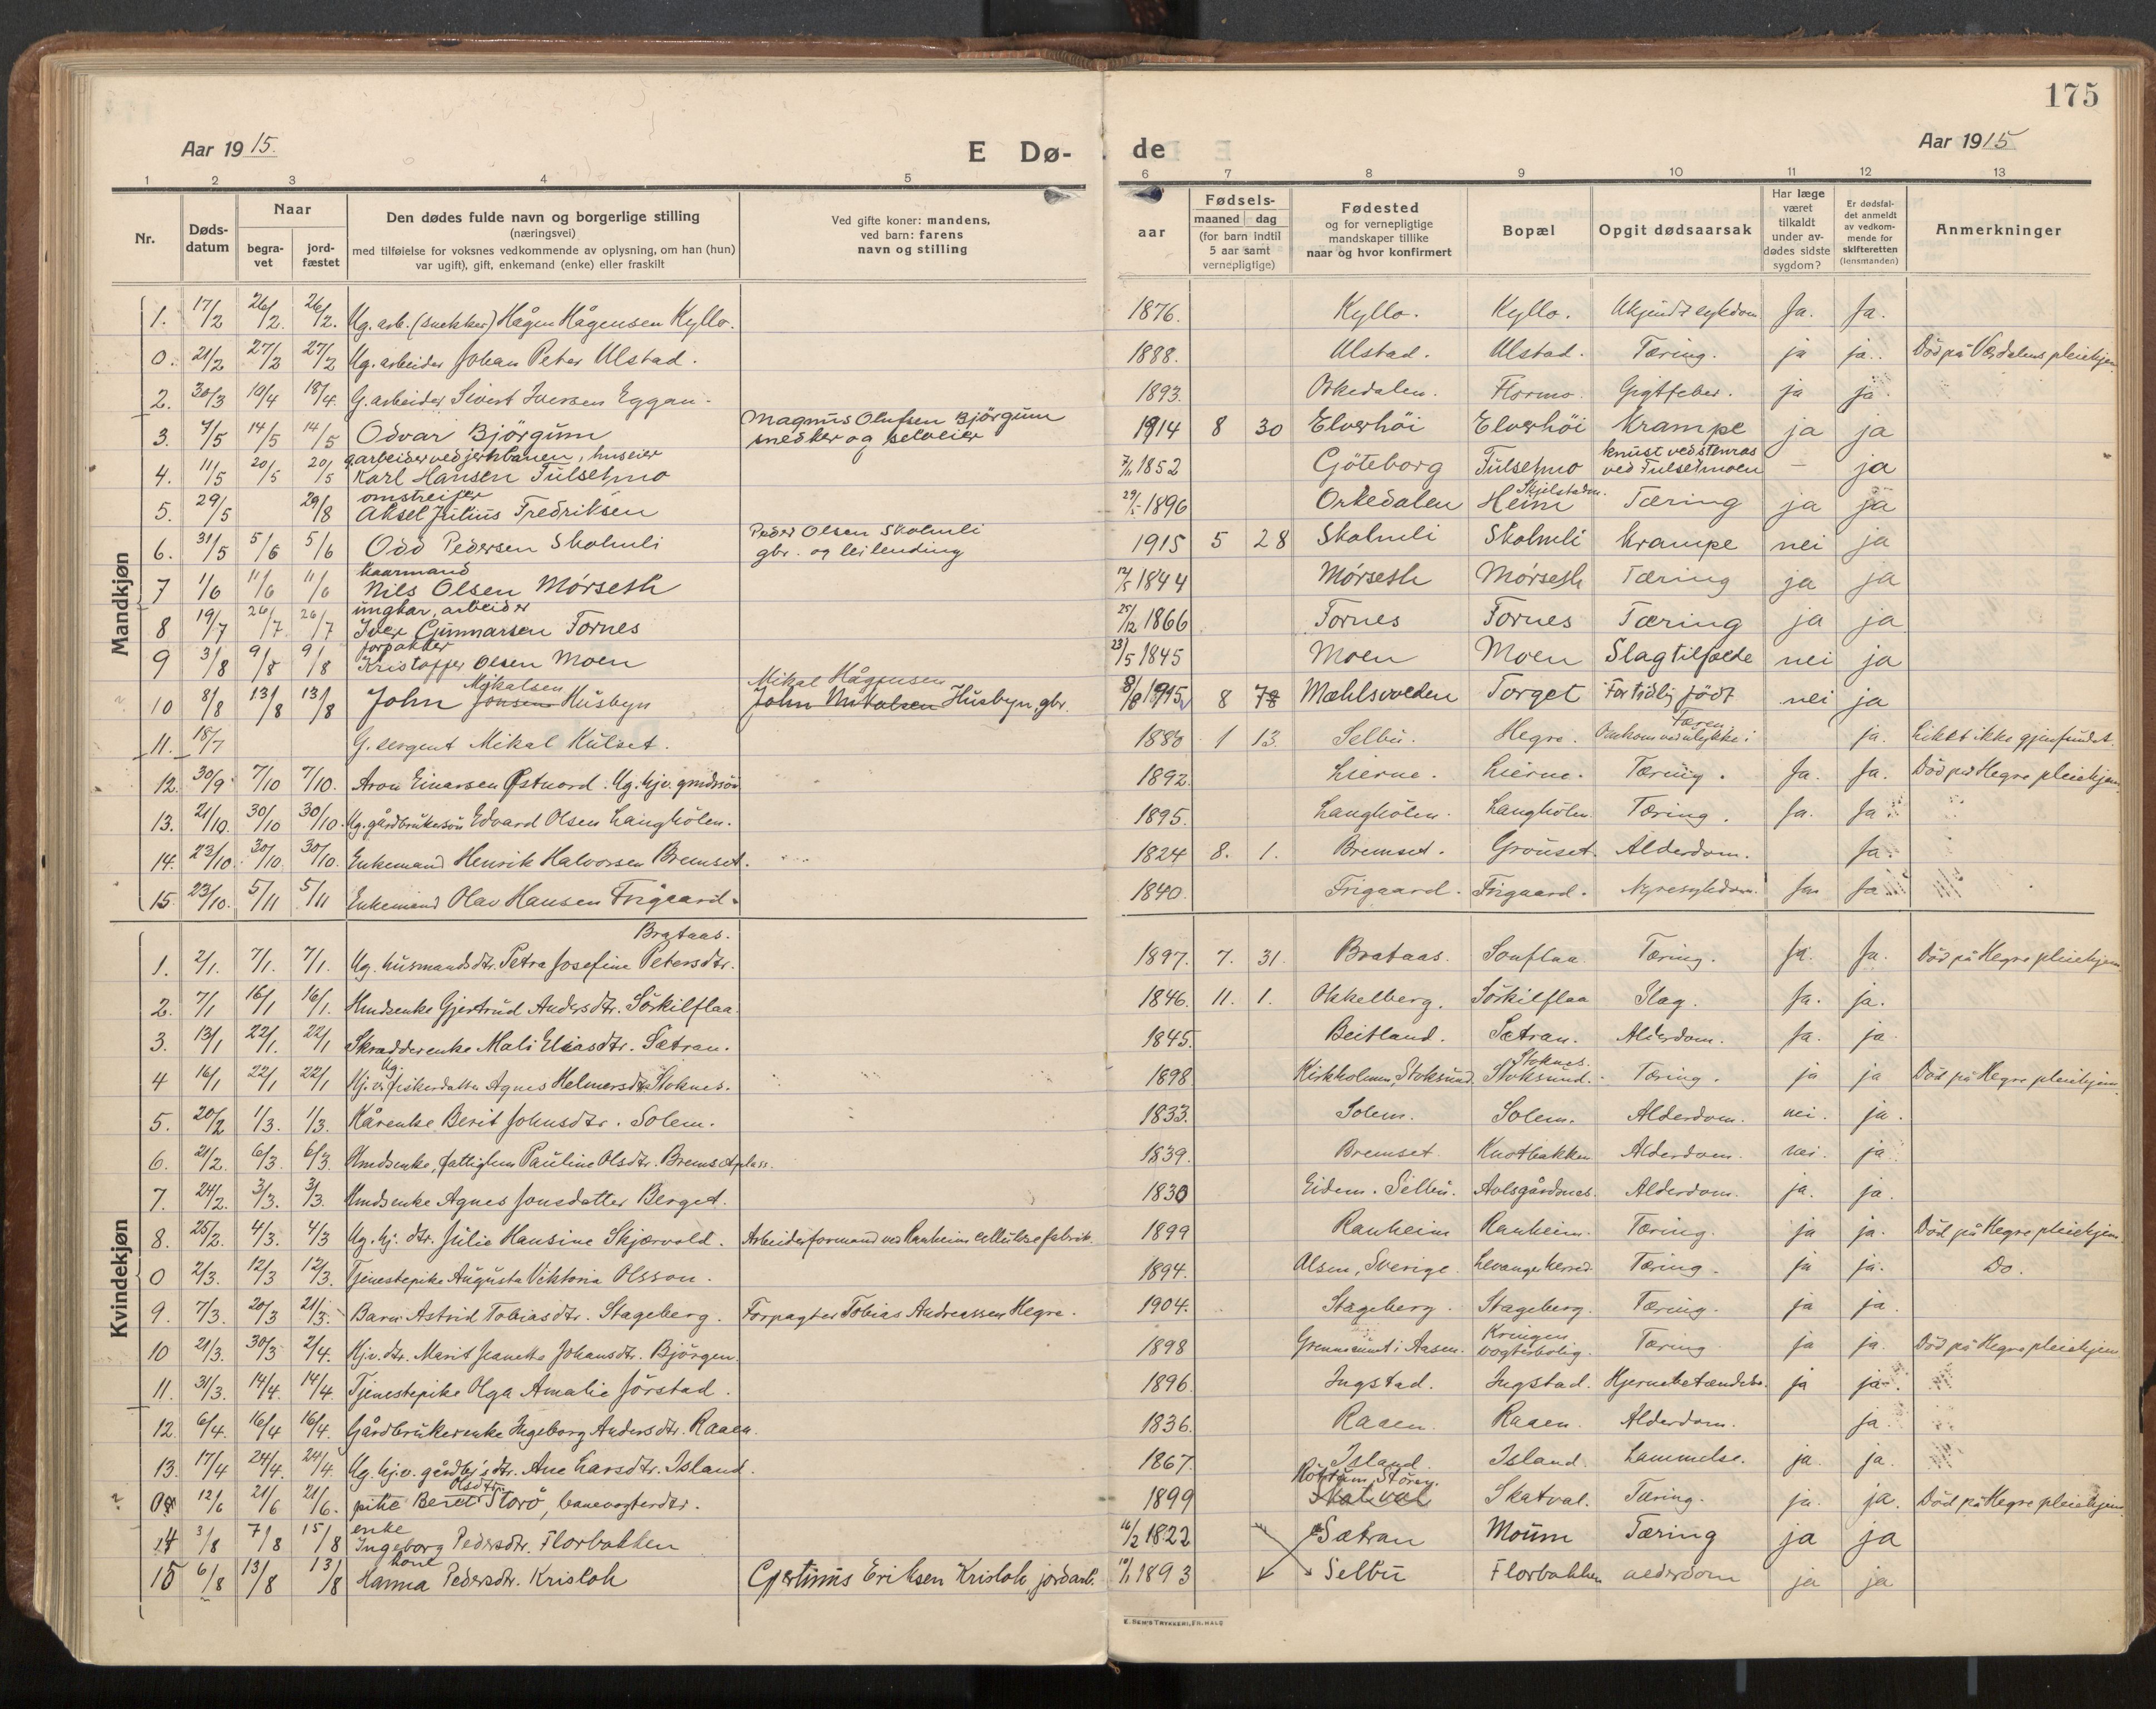 175
Aar 1915.
E Dø-de
Aar 1915
1 2 3 4 5 6 7 8 9 10 11 12 13
Nr.
Døds-datum
Naar
begra-vet
jord-fæstet
Den dødes fulde navn og borgerlige stilling
(næringsvei)
med tilføielse for voksnes vedkommende av oplysning, om han (hun)
var ugift), gift, enkemand (enke) eller fraskilt
Ved gifte koner: mandens,
ved barn: farens
navn og stilling
Fødsels-
aar
maaned
dag
(for barn indtil
5 aar samt
vernepligtige)
Fødested
og for vernepligtige
mandskaper tillike
naar og hvor konfirmert
Bopæl
Opgit dødsaarsak
Har læge
været
tilkaldt
under av-
dødes sidste
sygdom?
Er dødsfal-
det anmeldt
av vedkom-
mende for
skifteretten
(lensmanden)
Anmerkninger
Mandkjøn
1. 17/2 26/2. 26/2. Ug. arb. (snekker) Hågen Hågensen Kyllo. 1876. Kyllo. Kyllo. Ukjendt sykdom Ja. Ja.
0. 21/2 27/2 27/2 Ug. arbeider Johan Peter Ulstad. 1888. Ulstad. Ulstad. Tæring. ja ja. Död på Værdalens pleiehjem
2. 30/3 10/4 18/4. G. arbeider Sivert Iversen Eggan. 1893. Orkedalen. Flormo. Gigtfeber. ja ja.
3. 7/5 14/5 14/5 Odvar Björgum Magnus Olufsen Björgum snedker og selveier 1914 8 30 Elverhöi Elverhöi Krampe ja ja
4. 11/5 20/5 20/5 g. arbeider ved jernbanen, huseier Karl Hansen Fulsetmo 7/11 1852 Göteborg Fulsetmo knust ved stenras ved Fulsetmoen – ja
5. 29/5 29/8 omstreifer Aksel Julius Fredriksen 29/5 1896 Orkedalen Heim Skjelstadm. Tæring ja ja
6. 31/5 5/6 5/6 Odd Pedersen Skolmli Peder Olsen Skolmli gbr. og leilending 1915 5 28 Skolmli Skolmli Krampe nei ja
7 1/6 11/6 11/6 kaarmand Nils Olsen Mörseth 12/5 1844 Mörseth Mörseth Tæring ja ja
8 19/7 26/7 26/7 ungkar, arbeider Iver Gunnarsen Fornes 25/12 1866 Fornes Fornes Tæring ja ja
9 3/8 9/8 9/8 forpakter Kristoffer Olsen Moen 23/5 1845 Moen Moen Slagtilfælde nei ja
10 8/8 13/8 13/8 John Mikalsen Jonsen Husbyn Mikal Hågensen John Mikalsen Husbyn, gbr. 8/8 1915 8 78 Mæhlsvolden Torget For tidlig födt nei ja
11. 18/7 G. sergent Mikal Kulset. 1880 1 13. Selbu. Hegre. Omkom ved ulykke i Færen ja. Liket ikke gjenfundet.
12. 30/9 7/10 7/10. Aron Einarsen Østnord. Ug. hjv. grndssön 1892. Lierne. Lierne. Tæring. Ja. Ja. Död på Hegre pleiehjem
13. 21/10. 30/10 30/10. Ug. gårdbrukersön Edvard Olsen Langhölen. 1895. Langhölen. Langhölen. Tæring. Ja. Ja.
14. 23/10. 30/10. 30/10. Enkemand Henrik Halvorsen Bremset. 1824 8. 1. Bremset. Grouset. Alderdom. Ja.
15. 23/10. 5/11 5/11 Enkemand Olav Hansen Frigaard. 1840. Frigaard. Frigaard. Nyresykdom. Ja Ja
Kvindekjøn
1. 2/1. 7/1. 7/1. Ug. husmandsdtr. Petra Josefine Petersdtr. Brataas. 1897. 7. 31. Brataas. Sonflaa. Tæring. Ja. Ja. Död på Hegre pleiehjem
2. 7/1 16/1 16/1. Hmdsenke Gjertrud Andersdtr. Sörkilflaa. 1846. 11. 1. Okkelberg. Sörkilflaa Slag. Ja. ja.
3. 13/1 22/1. 22/1 Skrædderenke Mali Eliasdtr. Sætran. 1845. Beitland. Sætran. Alderdom. Ja. ja
4 16/1 22/1 22/1 Ug. Hj. v. fiskerdatter Agnes Helmersdtr. Stoknes. 1898. Kirkholmen, Stoksund. Stoknes. Stoksund. Tæring. ja ja Död på Hegre pleiehjem
5. 20/2 1/3. 1/3. Kårenke Berit Johnsdtr. Solem. 1833. Solem. Solem. Alderdom. nei. ja.
6. 21/2. 6/3. 6/3. Hmdsenke, fattiglem Pauline Olsdtr. Bremsetplass. 1839. Bremset Knotbakken Alderdom. nei. ja
7. 24/2. 3/3. 3/3. Hmdsenke Agnes Jonsdatter Berget. 1830 Eidem. Selbu. Avlsgårdsnes. Alderdom. ja. ja.
8. 25/2. 4/3. 4/3 Ug. hj. dtr. Julie Hansine Skjærvold. Arbeiderformand ved Ranheim cellulosefabrik. 1899 Ranheim Ranheim. Tæring. ja ja. Död på Hegre pleiehjem
0 2/3. 12/3 12/3. Tjenestepike Augusta Viktoria Olsson. 1894. Alsen, Sverige. Levanger herred. Tæring. ja ja. Do.
9. 7/3. 20/3 21/3. Barn Astrid Tobiasdtr. Stageberg. Forpagter Tobias Andreassen Hegre. 1904. Stageberg. Stageberg. Tæring. ja ja.
10 21/3. 30/3 2/4. Hjv. dtr. Marit Jeanette Johansdtr. Björgen. 1898 i Aasen. Kringen vogterbolig. Tæring. ja ja. Död på Hegre pleiehjem.
11. 31/3. 14/4. 14/4. Tjenestepike Olga Amalie Jörstad. 1896. Ingstad. Ingstad. Hjernebetændelse. ja ja.
12. 6/4. 16/4 16/4. Gårdbrukerenke Ingeborg Andersdtr. Raaen. 1836. Raaen. Raaen. Alderdom. ja.
13. 17/4 24/4. 24/4. Ug. hj. v. gårdbr.'s dtr. Ane Larsdtr. Island. 1867. Island. Island Lammelse. ja. ja.
0 12/6 21/6 21/6. pike Beret Olsdtr. Storö, banevogterdtr. 1899 Skatval Skatval. Tæring. ja. ja. Död på Hegre pleiehjem
14 3/8 7/8 15/8 enke Ingeborg Pedersdtr. Florbakken 16/2 1822 Sætran Moum Tæring ja ja
15 6/8 13/8 13/8 kone Hanna Pedersdtr. Krisloh Gjertinus Eriksen Krisloh, jordarb. 1893 Selbu Florbakken alderdom ja ja
E. SEM'S TRYKKERI, FR.HALD